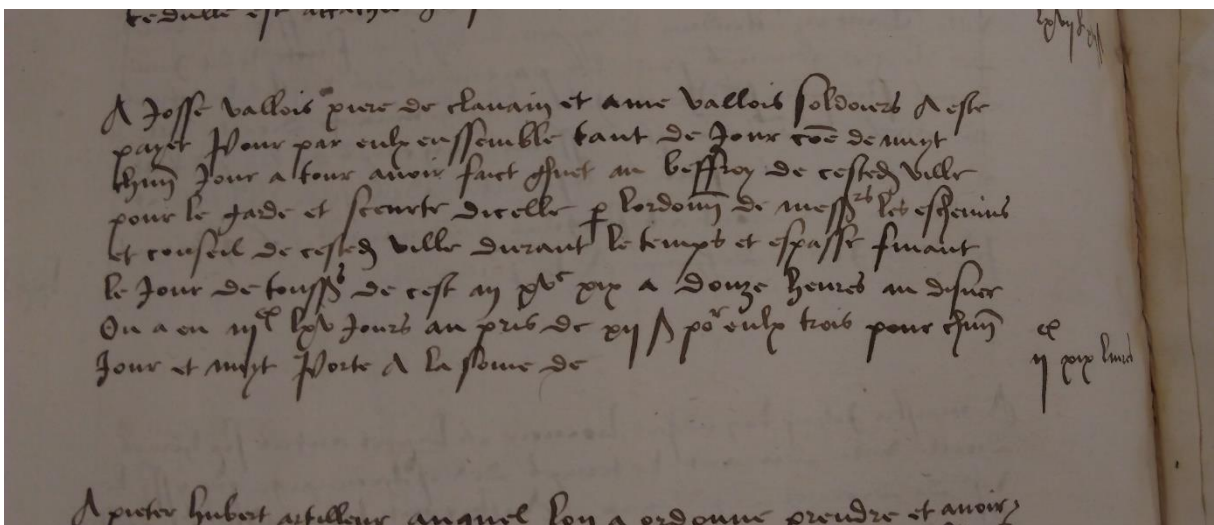 cedulle est attachee
A Josse Vallois piere de clauain et ame Vallois soldoiers A este
payet Pour par eulx enssemble tant de Jour cõe de nuyt
chũn Jour a tour auoir faict ghuet au beffroy de cested ville
pour le garde et sceurte dicelle p lordonn de mess rs les escheuins
et conseil de cested ville durant le temps et espasse finant
le Jour de touss s de cest an xv c xix a douze heures au disner
Ou a eu iii c lxv Jours au pris de xii s po r eulx trois pour chũn
Jour et nuyt Porte A la some de
ii c xix liures
A pieter hubert artilleur auquel lon a ordonne prendre et auoir